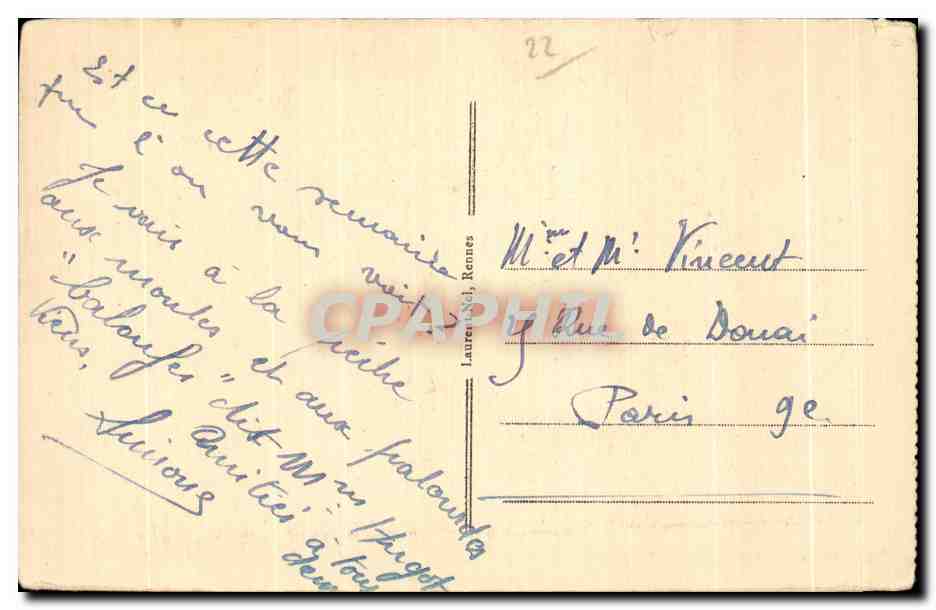 22
Est ce cette semaine
que l'on vous voit ?
Je vais à la pêche
aux moules et aux palourdes
"baloufes" dit Mme Hugot
Viens,
Amitiés à tous
deux
Simone
Laurent-Nel, Rennes
Mme et Mr Vincent
Rue de Douai
Paris 9e
CPAPHIL